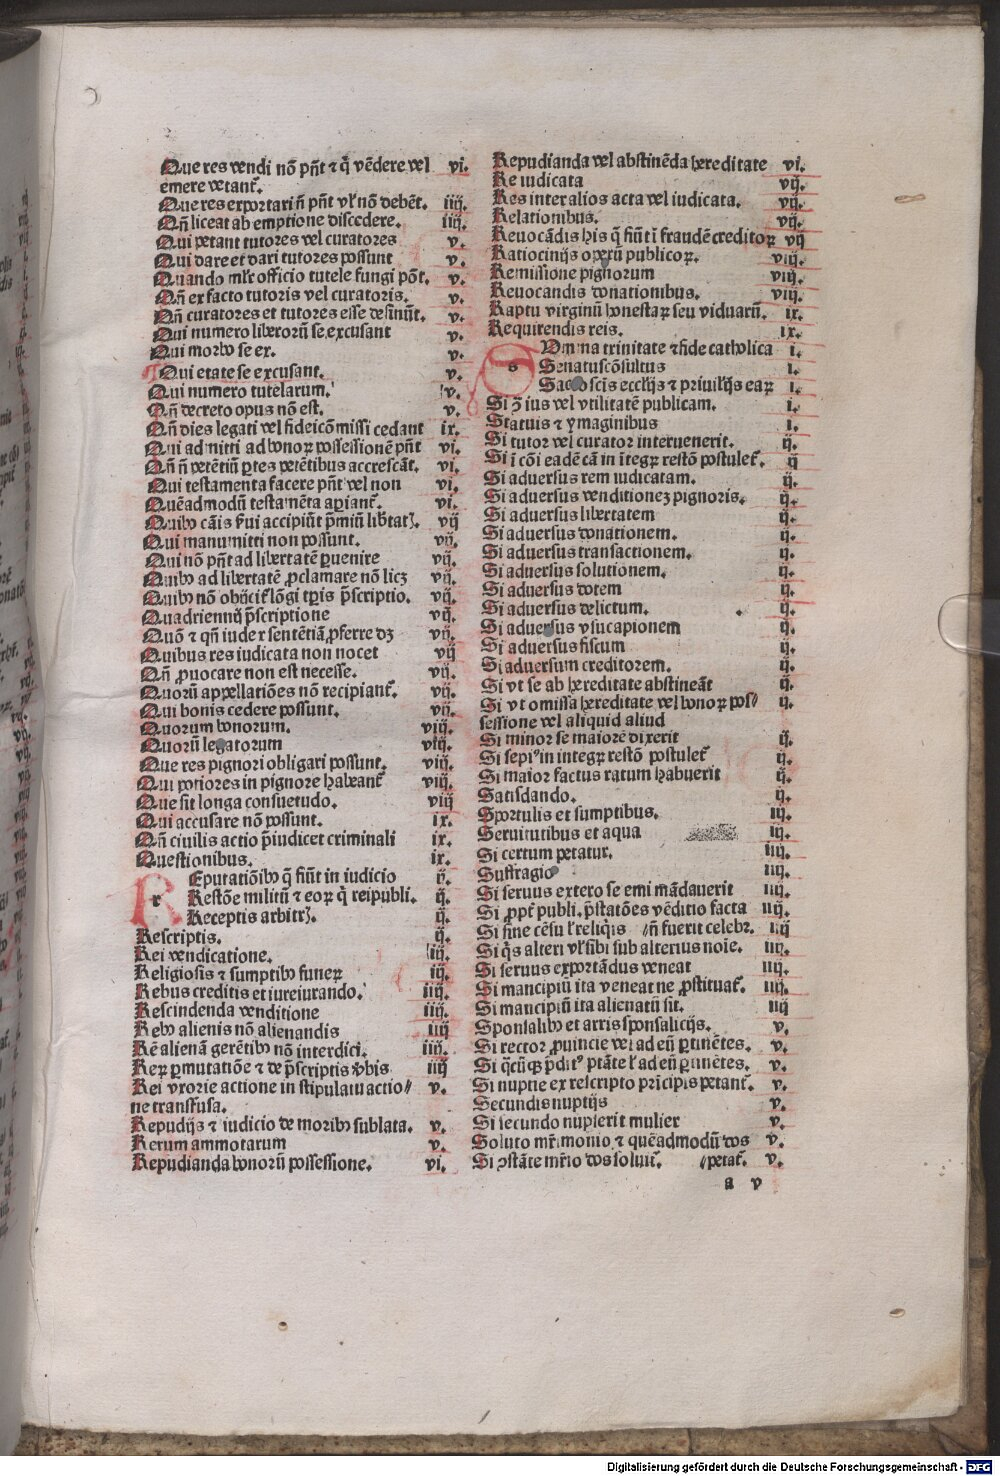 Que res vendi nō pn̄t ⁊ q̄ vēdere vel vi.
emere vetant᷑.
Que res exportari n̄ pn̄t vl' nō debēt. iiij.
Qn̄ liceat ab emptione discedere. iiij.
Qui petant tutores vel curatores v.
Qui dare et dari tutores possunt v.
Quando ml'r officio tutele fungi pōt. v.
Qn̄ ex facto tutoris vel curatoris. v.
Qn̄ curatores et tutores esse desinūt. v.
Qui numero liberorū se excusant v.
Qui morbo se ex. v.
Qui etate se excusant. v.
Qui numero tutelarum. v.
Qn̄ decreto opus nō est. v.
Qn̄ dies legati vel fideicōmissi cedant ix.
Qui admitti ad bonoꝝ possessionē pn̄t vi.
Qn̄ n̄ petētiū ꝑtes petētibus accrescāt. vi.
Qui testamenta facere pn̄t vel non vi.
Quēadmodū testamēta apiant᷑. vi.
Quibꝰ cāis ẜui accipiūt p̄miū lib̄tatꝭ. vij
Qui manumitti non possunt. vij.
Qui nō pn̄t ad libertatē ꝑuenire vij.
Quibꝰ ad libertatē ꝓclamare nō licꝫ vij.
Quibꝰ nō obijcit᷑ lōgi tꝑis p̄scriptio. vij.
Quadriennij p̄scriptione vij.
Quō ⁊ qn̄ iudex sentētiā ꝓferre dꝫ vij.
Quibus res iudicata non nocet vij
Qn̄ ꝓuocare non est necesse. vij.
Quorū appellatiōes nō recipiant᷑. vij.
Qui bonis cedere possunt. vij.
Quorum bonorum. viij.
Quorū legatorum viij.
Que res pignori obligari possunt. viij.
Qui potiores in pignore habeant᷑ viij.
Que sit longa consuetudo. viij
Qui accusare nō possunt. ix.
Qn̄ ciuilis actio p̄iudicet criminali ix.
Questionibus. ix.
r Eputatiōibꝰ q̄ fiūt in iudicio ij.
Restōe militū ⁊ eoꝝ q̄ reipubli. ij.
Receptis arbitrꝭ. ij.
Rescriptis. ij.
Rei vendicatione. iij.
Religiosis ⁊ sumptibꝰ funeꝝ iij.
Rebus creditis et iureiurando. iiij.
Rescindenda venditione iiij.
Rebꝰ alienis nō alienandis iiij
Rē alienā gerētibꝰ nō interdici. iiij.
Reꝝ ꝑmutatiōe ⁊ de p̄scriptis v̄bis iiij
Rei vxorie actione in stipulatu actio⸗ v.
ne transfusa.
Repudijs ⁊ iudicio de moribꝰ sublata. v.
Rerum ammotarum v.
Repudianda bonorū possessione. vi.
Repudianda vel abstinēda hereditate vi.
Re iudicata vij.
Res inter alios acta vel iudicata. vij.
Relationibus. vij.
Reuocādis his q̄ fiūt ī fraudē creditoꝝ vij
Ratiocinijs operū publicoꝝ. viij.
Remissione pignorum viij.
Reuocandis donationibus. viij.
Raptu virginū honestaꝝ seu viduarū. ix.
Requirendis reis. ix.
s Vmma trinitate ⁊ fide catholica i.
Senatuscōsultus i.
Sacrosctis eccl'ijs ⁊ priuil'ijs eaꝝ i.
Si ꝯ ius vel vtilitatē publicam. i.
Statuis ⁊ ymaginibus i.
Si tutor vel curator interuenerit. ij.
Si ī cōi eadē cā in ītegꝝ restō postulet᷑. ij
Si aduersus rem iudicatam. ij.
Si aduersus venditionez pignoris. ij.
Si aduersus libertatem ij.
Si aduersus donationem. ij.
Si aduersus transactionem. ij.
Si aduersus solutionem. ij.
Si aduersus dotem ij.
Si aduersus delictum. ij.
Si aduersus vsucapionem ij.
Si aduersus fiscum ij.
Si aduersum creditorem. ij.
Si vt se ab hereditate abstineāt ij.
Si vt omissa hereditate vel bonoꝝ pos⸗ ij.
sessione vel aliquid aliud
Si minor se maiorē dixerit ij.
Si sepiꝰ in integꝝ restō postulet᷑ ij.
Si maior factus ratum habuerit ij.
Satisdando. ij.
Sportulis et sumptibus. iij.
Seruitutibus et aqua iij.
Si certum petatur. iiij.
Suffragio iiij.
Si seruus extero se emi mādauerit iiij.
Si ꝓpt᷑ publi. p̄statōes vēditio facta iiij.
Si sine cēsu l' reliq̇is qn̄ fuerit celebr. iiij
Si q̇s alteri vl' sibi sub alterius noīe. iiij.
Si seruus exportādus veneat iiij.
Si mancipiū ita veneat ne ꝓstituat᷑. iiij.
Si mancipiū ita alienatū sit. iiij
Sponsalibꝰ et arris sponsalicijs. v.
Si rector ꝓuincie vel ad eū ꝑtinētes. v.
Si q̇cūqꝫ p̄ditꝰ ptāte l' ad eū ꝑtinētes. v.
Si nuptie ex rescripto prīcipis petant᷑. v.
Secundis nuptijs v.
Si secundo nupserit mulier v.
Soluto mr̄imonio ⁊ quēadmodū dos v.
Si ꝯstāte mr̄io dos soluit᷑. petat᷑. v.
a v
Digitalisierung gefördert durch die Deutsche Forschungsgemeinschaft - DFG